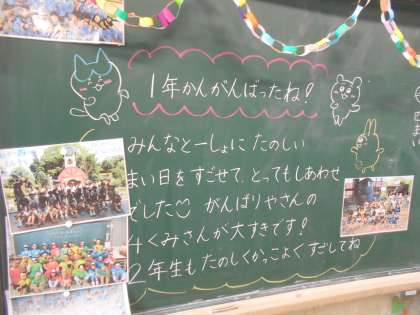 1年かんがんばったね!
みんなとーしょに たのしい
まい日をすごせて、とってもしあわせ
でした がんばりやさんの
4くみさんが大すきです!
2年生もたのしくかっこよくすごしてね